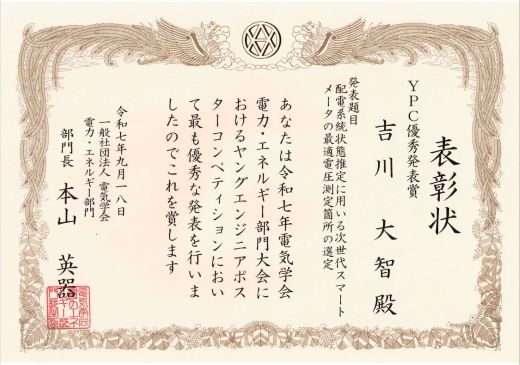 表彰状
YPC優秀発表賞
吉川 大智 殿
発表題目
配電系統状態推定に用いる次世代スマート
メータの最適電圧測定箇所の選定
あなたは令和七年電気学会
電力・エネルギー部門大会に
おけるヤングエンジニアポス
ターコンペティションにおい
て最も優秀な発表を行いま
したのでこれを賞します
令和七年九月一八日
一般社団法人 電気学会
電力・エネルギー部門
部門長 本山 英器